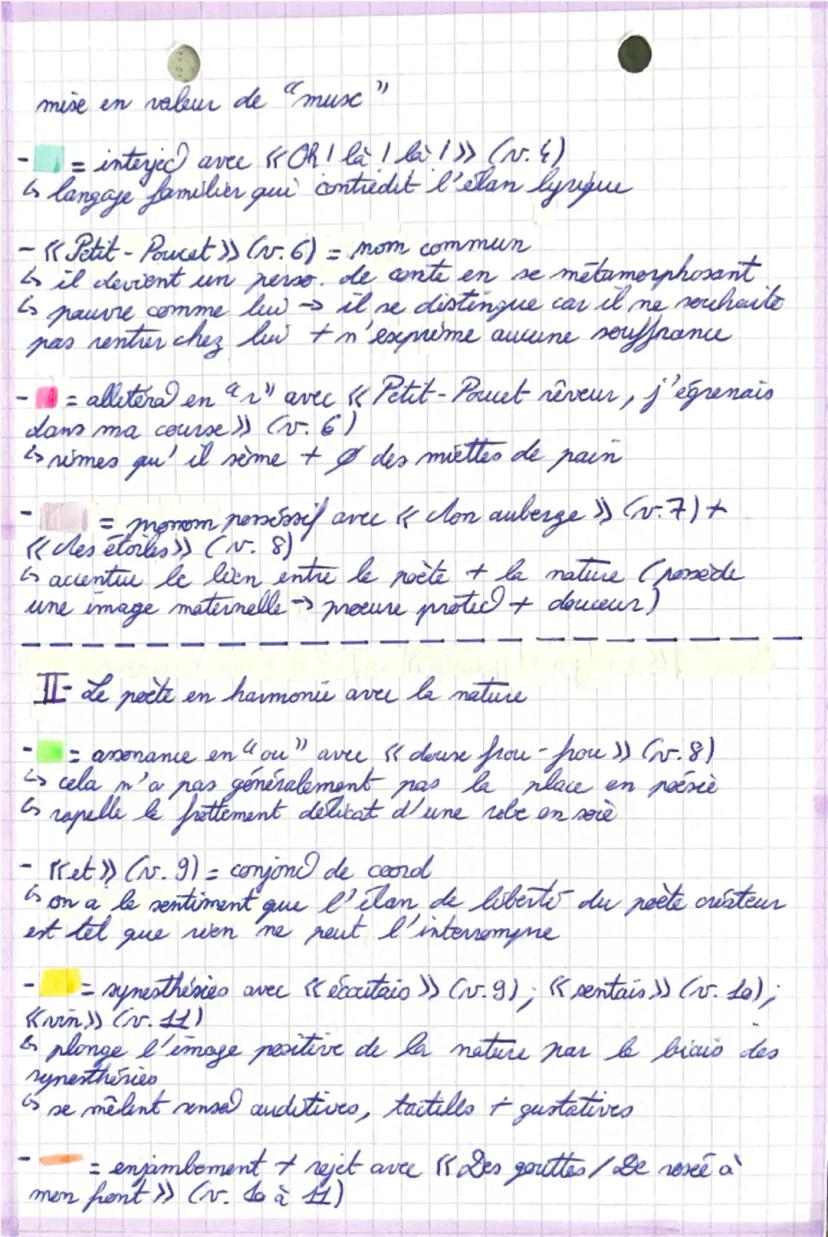 mise en valeur de "muse"
- = interjec° avec «Oh! là! là!» (v.4)
↳ langage familier qui contredit l'élan lyrique
- «Petit-Poucet» (v.6) = nom commun
↳ il devient un perso. de conte en se métamorphosant
↳ pauvre comme lui → il se distingue car il ne souhaite
pas rentrer chez lui + n'exprime aucune souffrance
- = allitéra° en "r" avec «Petit-Poucet rêveur, j'égrenais
dans ma course» (v.6)
↳ rimes qu'il sème + Ø des miettes de pain
- = pronom possessif avec «Mon auberge» (v.7) +
«Mes étoiles» (v. 8)
↳ accentue le lien entre le poète + la nature (possède
une image maternelle → procure protec° + douceur)
II- Le poète en harmonie avec la nature
- = assonance en "ou" avec «doux frou-frou» (v.8)
↳ cela n'a pas généralement pas la place en poésie
↳ rapelle le frottement délicat d'une robe en soie
- «et» (v. 9) = conjonc° de coord
↳ on a le sentiment que l'élan de liberté du poète créateur
est tel que rien ne peut l'interrompre
- = synesthésies avec «écoutais» (v.9); «sentais» (v. 10);
«vin» (v. 11)
↳ plonge l'image positive de la nature par le biais des
synesthésies
↳ se mêlent sensa° auditives, tactiles + gustatives
- = enjambement + rejet avec «Des gouttes / De rosée à
mon front» (v. 10 à 11)